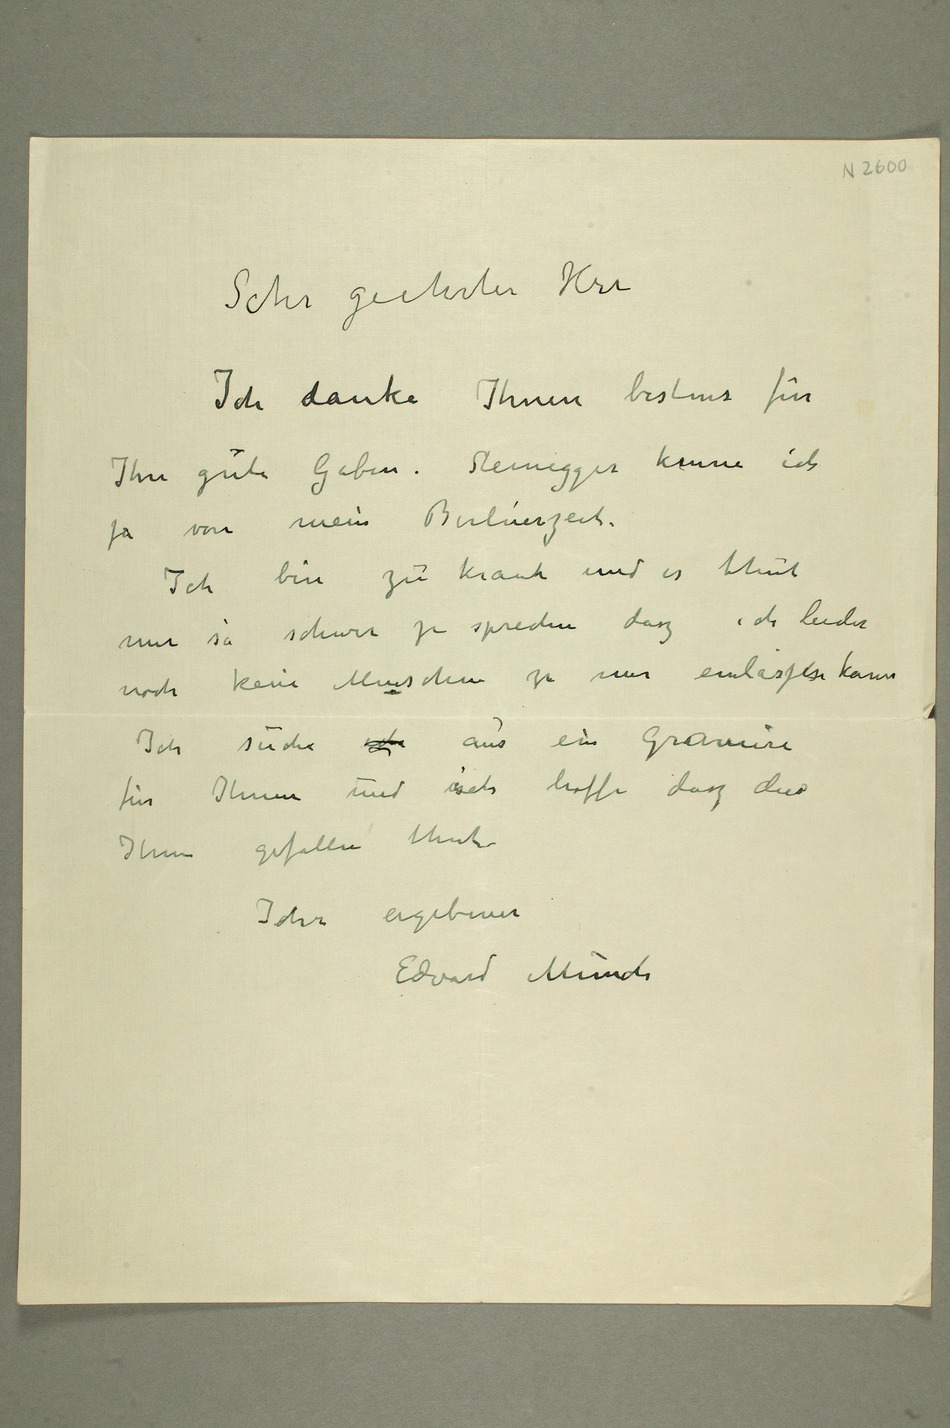 N 2600
Sehr geehrter Herr
Ich danke Ihnen bestens für
Ihre gute Gaben. Steinegger kenne ich
ja von mein Berlinerzeit.
Ich bin zu krank und es thut
mir so schwer zu sprechen dasz ich leider
noch keine Menschen zu mir einlassen kann
Ich suche aus ein Gravüre
für Ihnen und ich hoffe dasz dies
Ihnen gefallen thut
Ihr ergebener
Edvard Munch